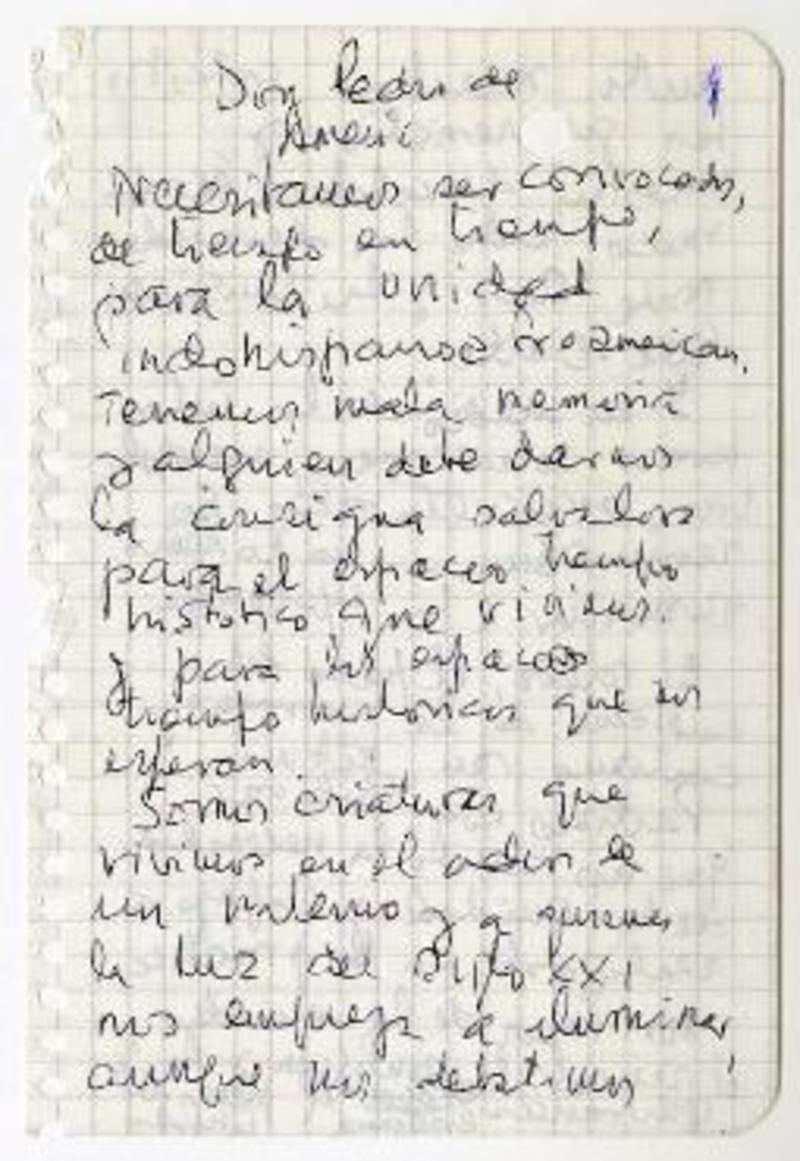 Don Pedro de
America
Necesitamos ser convocados,
de tiempo en tiempo,
para la unidad
indohispanoafroamericana.
Tenemos mala memoria
y alguien debe darnos
la consigna salvadora
para el espacio tiempo
histórico que vivimos.
y para los espacios
tiempo historicos que nos
esperan.
Somos criaturas que
vivimos en el adios de
un milenio y a quienes
la luz del Siglo XXI
nos empieza a iluminar,
aunque nos debatimos